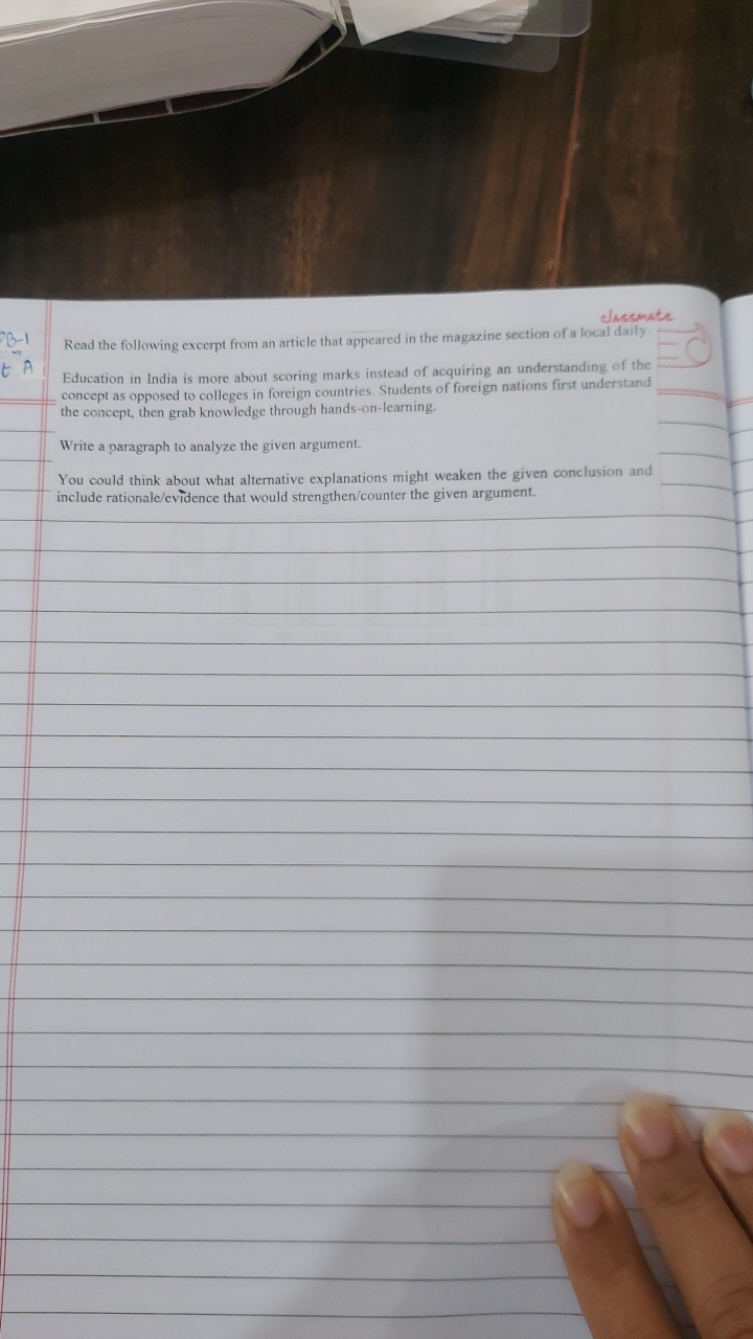 classmate
PB-1
t A
Read the following excerpt from an article that appeared in the magazine section of a local daily.
Education in India is more about scoring marks instead of acquiring an understanding of the
concept as opposed to colleges in foreign countries. Students of foreign nations first understand
the concept, then grab knowledge through hands-on-learning.
Write a paragraph to analyze the given argument.
You could think about what alternative explanations might weaken the given conclusion and
include rationale/evidence that would strengthen/counter the given argument.